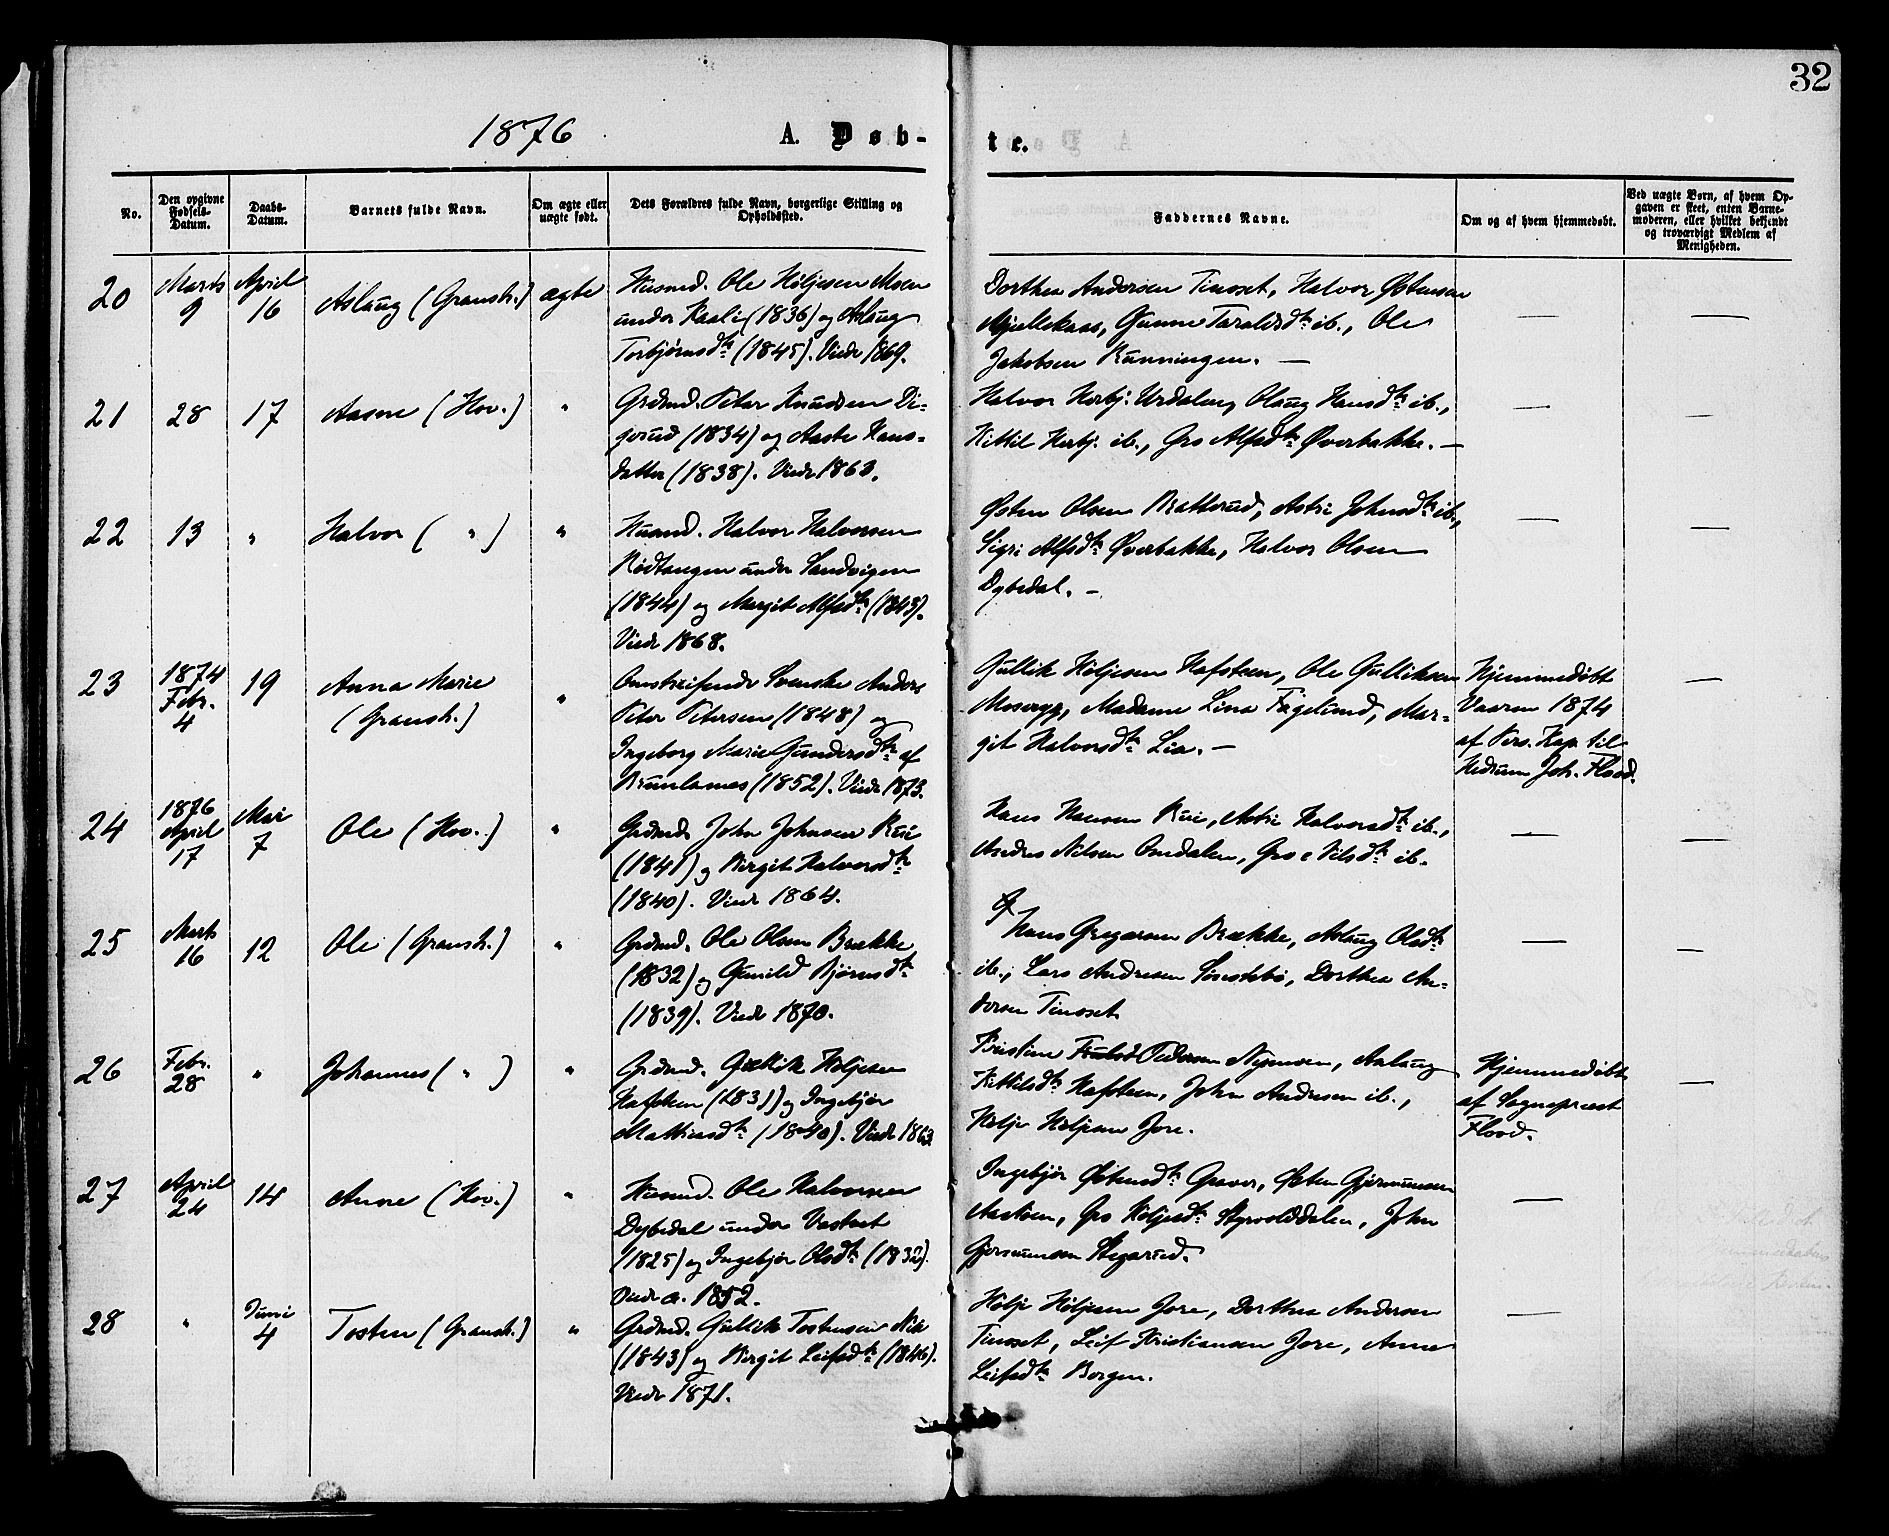 32
1876
A. Døb-
te.
No.
Den opgivne Fødsels-Datum.
Daabs-Datum.
Barnets fulde Navn.
Om ægte eller uægte født.
Dets Forældres fulde Navn, borgerlige Stilling og Opholdsted.
Faddernes Navne.
Om og af hvem hjemmedøbt.
Ved uægte Børn, af hvem Opgaven er skeet, enten Barnemoderen, eller hvilket bekjendt og troværdigt Medlem af Menigheden.
20
Marts
9
April
16
Aslaug (Gransh.)
ægte
Husmd. Ole Høljesen Moen
under Kaali (1836) og Aslaug
Torbjørnsdtr (1845). Viede 1869.
Dorthea Andersen Tinsset, Halvor Østensen
Mjellekaas, Gunne Taraldsdtr ib., Ole
Jakobsen Kunningen. —
—
—
21
28
17
Aasne (Hov.)
"
Grdmd. Peter Knudsen Di-
gerud (1834) og Aaste Hans-
datter (1838). Viede 1863.
Halvor Herbj. Urdalen, Olaug Hansdtr ib.,
Kittil Herbj. ib., Gro Alfsdtr Øverbakke. —
—
—
22
13
"
Halvor ( " )
"
Husmd. Halvor Halvorsen
Rødtangen under Sandvigen
(1844) og Margit Alfsdtr (1843).
Viede 1868.
Østen Olsen Bratterud, Astri Johnsdtr ib.,
Sigri Alfsdtr Øverbakke, Halvor Olsen
Dybedal. —
—
—
23
1874
Febr.
4
19
Anna Marie
(Gransh.)
"
Omstreifende Svenske Anders
Peter Petersen (1848) og
Ingeborg Marie Gundersdtr af
Brunlanes (1852). Viede 1873.
Gullik Høljesen Hafsteen, Ole Gulliksen
Moseryg, Madame Lina Fagelund, Mar-
git Halvorsdtr Lia. —
Hjemmedøbt
Vaaren 1874
af Pers. Kap. til
Hedrum Joh. Flood.
—
24
1876
April
17
Mai
7
Ole (Hov.)
"
Grdmd. John Johnsen Rui
(1841) og Birgit Halvorsdtr
(1840). Viede 1864.
Hans Hansen Rui, Astri Halvorsdtr ib.,
Andres Nilsen Omdalen, Gro Nilsdtr ib.
—
—
25
Marts
16
12
Ole (Gransh.)
"
Grdmd. Ole Olsen Brække
(1832) og Gunild Bjørnsdtr
(1839). Viede 1870.
Hans Gregersen Brække, Aslaug Olsdtr
ib., Lars Andresen Sønstebø, Dorthea An-
dersen Tinsset.
—
—
26
Febr.
28
"
Johannes ( " )
"
Grdmd. Gullik Høljesen
Hafsteen (1831) og Ingebjør
Mathiasdtr (1840). Viede 1863.
Kristine Pedersen Nymoen, Aslaug
Kittilsdtr Hafsteen, John Andresen ib.,
Hølje Høljesen Jore.
Hjemmedøbt
af Sognepræst
Flood.
—
27
April
24
14
Anne (Hov.)
"
Husmd. Ole Halvorsen
Dybedal under Vestret
(1825) og Ingebjør Olsdtr (1832).
Viede a. 1852.
Ingebjør Østensdtr Graver, Østen Gjermunsen
Aasteen, Gro Høljesdtr Styrvolddalen, John
Gjermunsen Stegarud.
—
28
"
Juni
4
Tosten (Gransh.)
"
Grdmd. Gullik Tostensen Nia
(1843) og Birgit Leifsdtr (1846).
Viede 1871.
Hølje Høljesen Jore, Dorthea Andersen
Tinsset, Leif Kristiansen Jore, Anne
Leifsdtr Borgen.
—